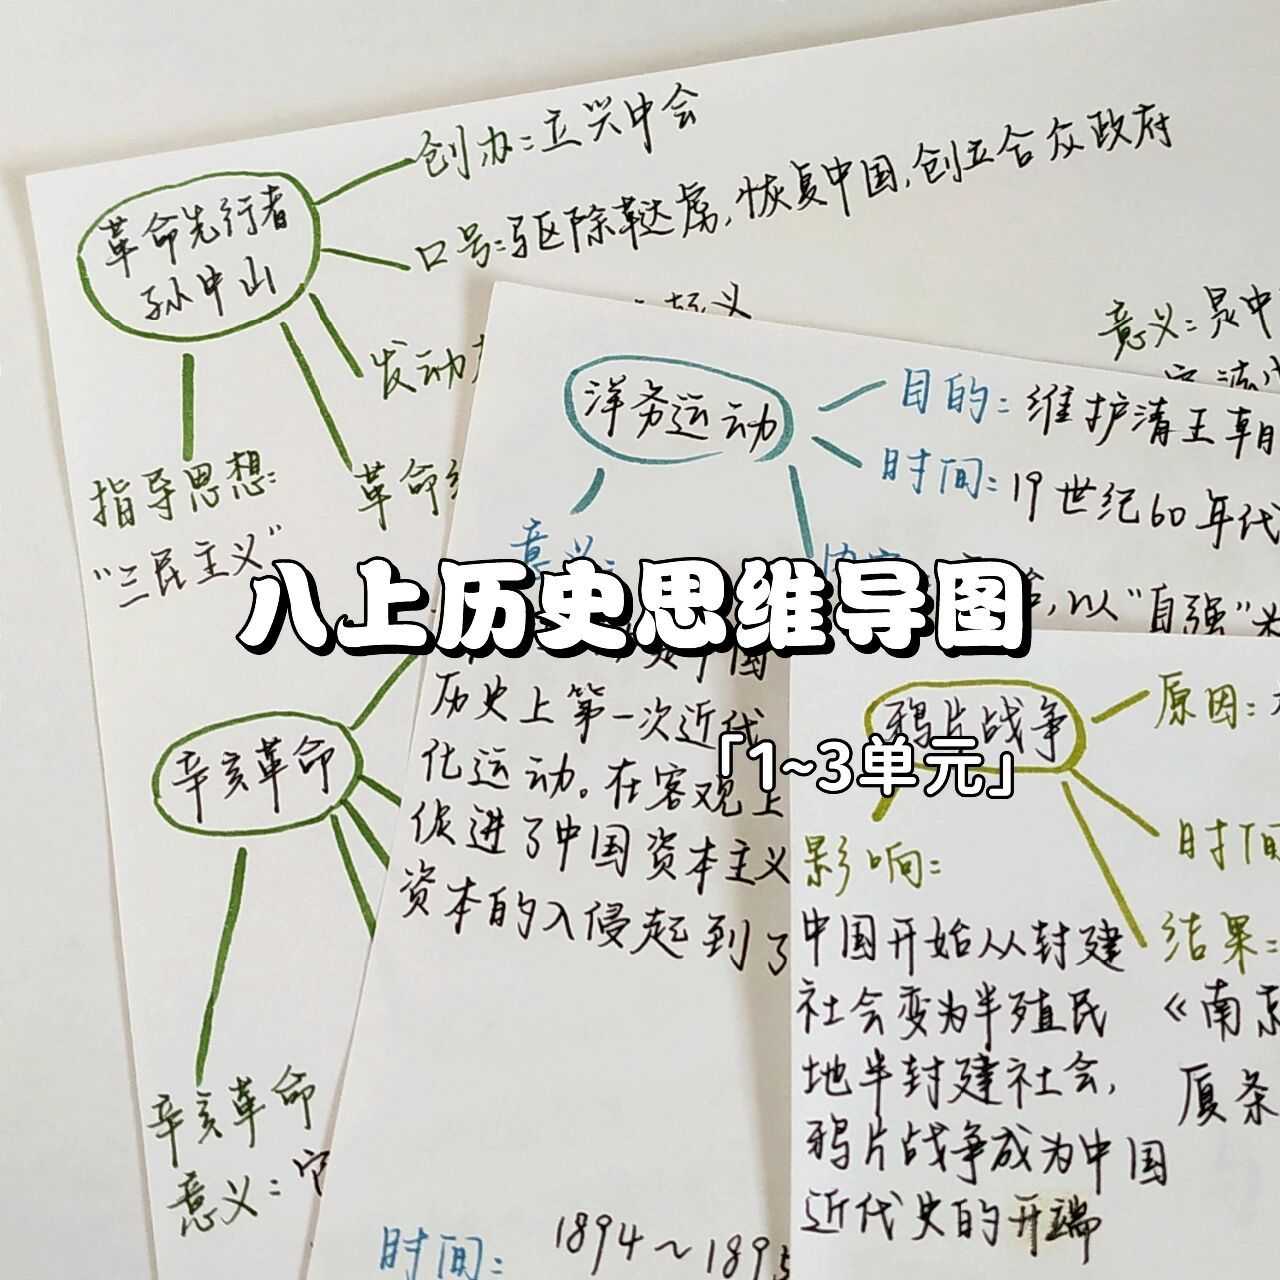 创办:立兴中会
口号:驱除鞑虏,恢复中国,创立合众政府
革命先行者
孙中山
发动
起义
意义:是中
指导思想:
"三民主义"
革命
洋务运动
目的:维护清王朝
时间:19世纪60年代
意义:
以"自强"为
八上历史思维导图
「1~3单元」
中国
历史上第一次近代
化运动。在客观上
促进了中国资本主义
资本的入侵起到了
辛亥革命
辛亥革命
意义:
时间:1894~1895
鸦片战争
原因:
时间
影响:
中国开始从封建
社会变为半殖民
地半封建社会,
鸦片战争成为中国
近代史的开端
结果:
《南京
厦条